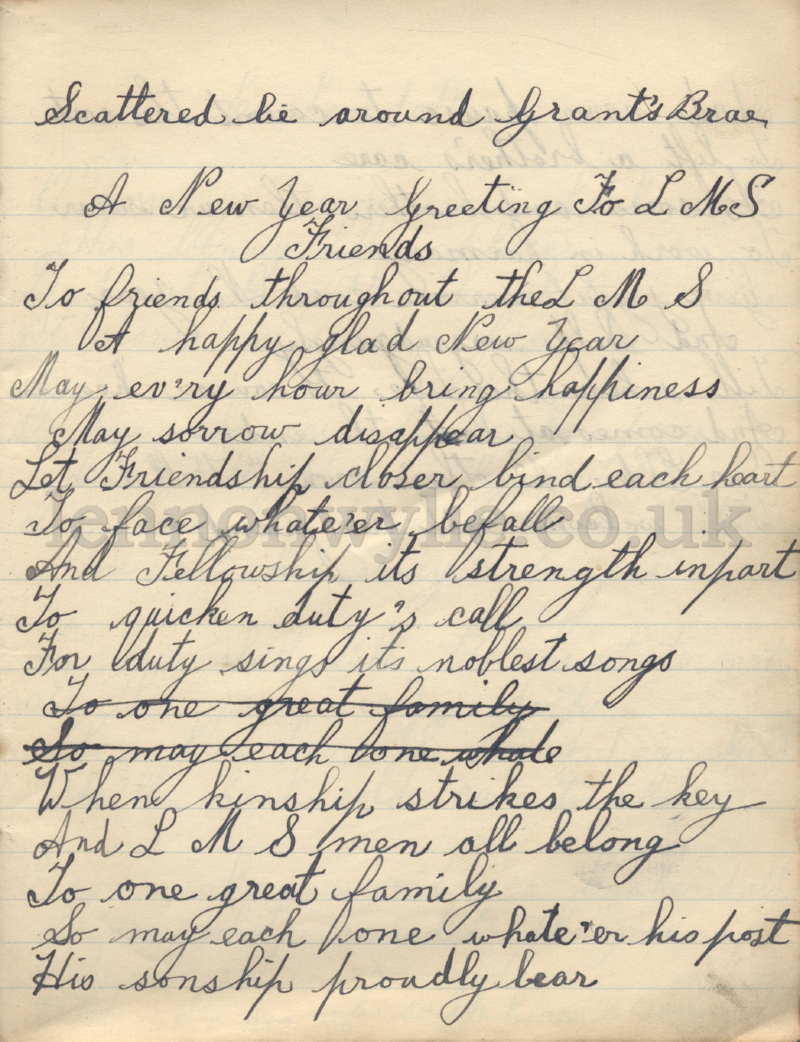 Scattered lie around Grant's Brae
A New Year Greeting To L M S
Friends
To friends throughout the L M S
A happy glad New Year
May ev'ry hour bring happiness
May sorrow disappear
Let Friendship closer bind each heart
To face whate'er befall
And Fellowship its strength inpart
To quicken duty's call
For duty sings its noblest songs
To one great family
So may each one whate
When kinship strikes the key
And L M S men all belong
To one great family
So may each one whate'er his post
His sonship proudly bear
lennonwylie.co.uk